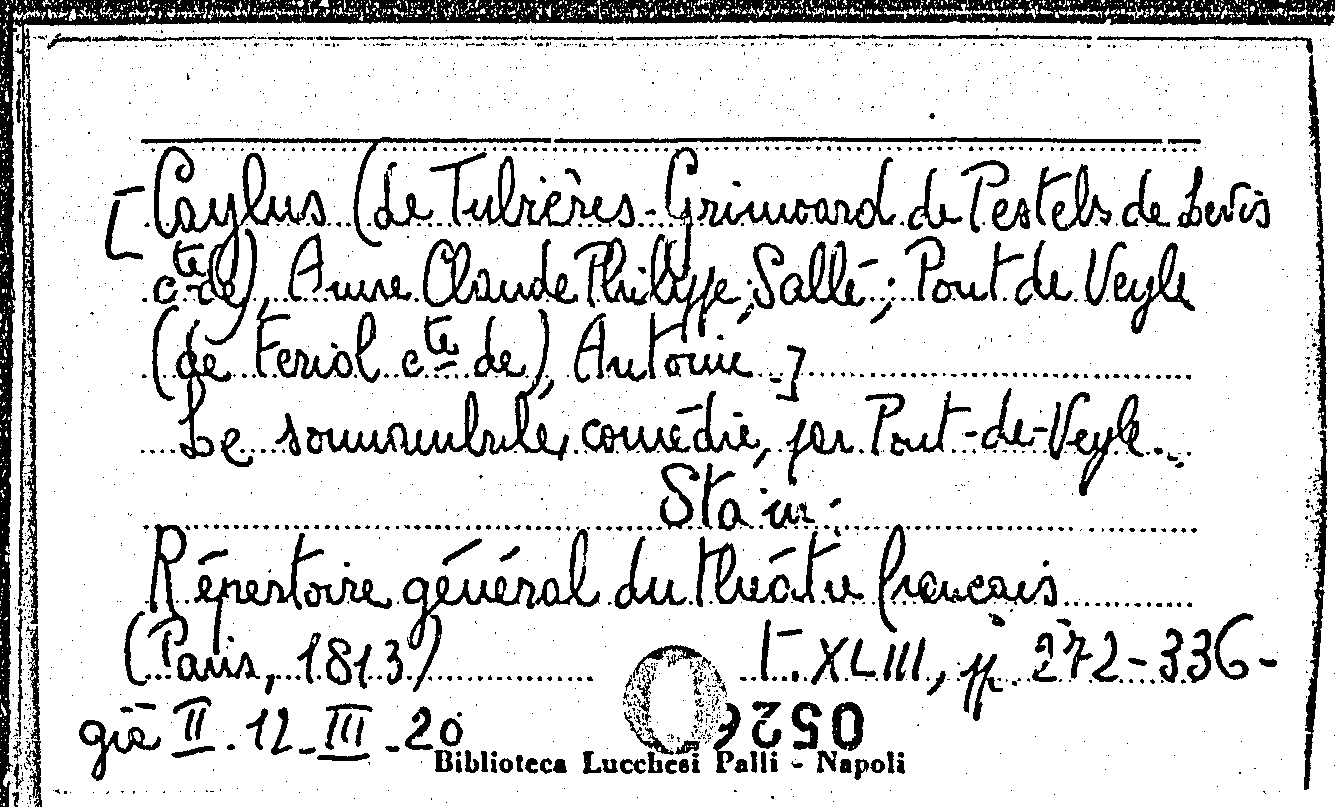 [Caylus (de Tubières-Grimoard de Pestels de Levis
cte de), Anne Claude Philippe; Sallé; Pont de Veyle
(de Feriol cte de), Antoine.]
Le somnambule, comédie, par Pont-de-Veyle...
Sta in:
Répertoire général du théâtre français
(Paris, 1813) T. XLIII, pp. 272-336-
già II. 12-III-20
Biblioteca Lucchesi Palli - Napoli